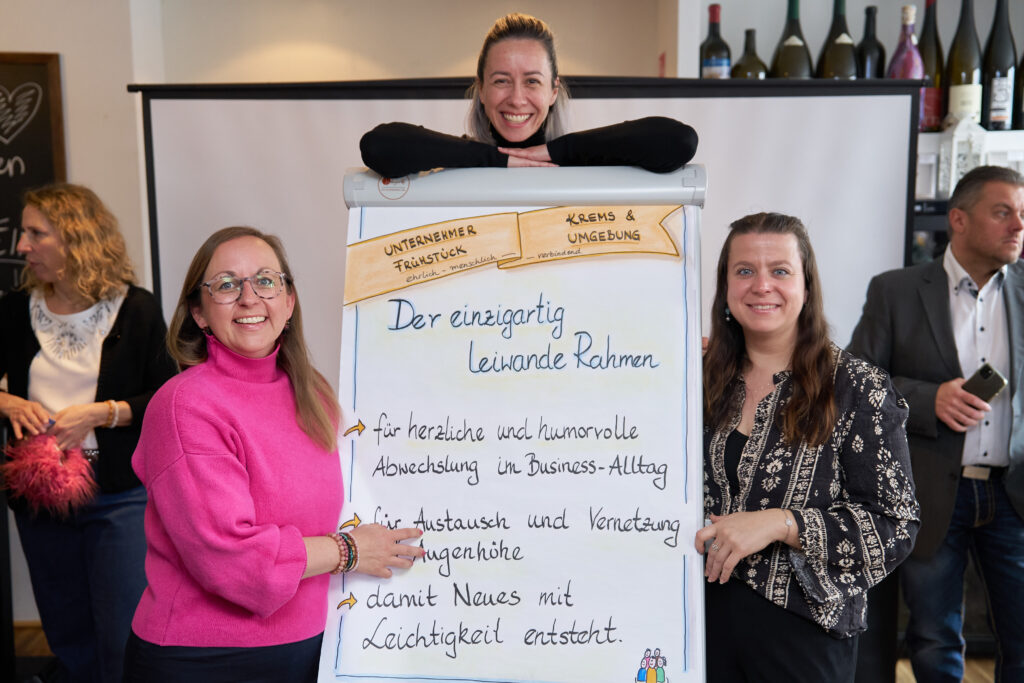 UNTERNEHMER
FRÜHSTÜCK
KREMS &
UMGEBUNG
ehrlich - menschlich - - verbindend
Der einzigartig
leiwande Rahmen
für herzliche und humorvolle
Abwechslung im Business-Alltag
für Austausch und Vernetzung
Augenhöhe
damit Neues mit
Leichtigkeit entsteht.